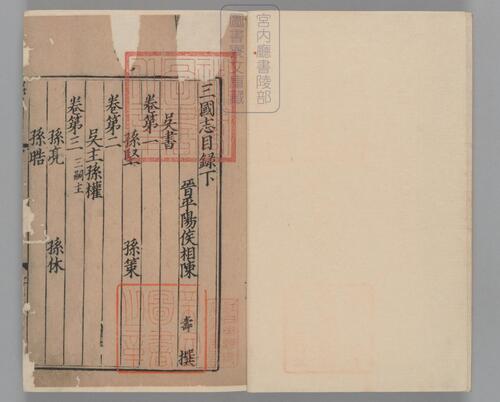 三國志目録下
晉平陽侯相陳 壽 撰
吳書
卷第一
孫堅 孫策
卷第二
吳主孫權
卷第三 三嗣主
孫亮 孫休
孫晧
宮内廳書陵部
圖書寮文庫藏